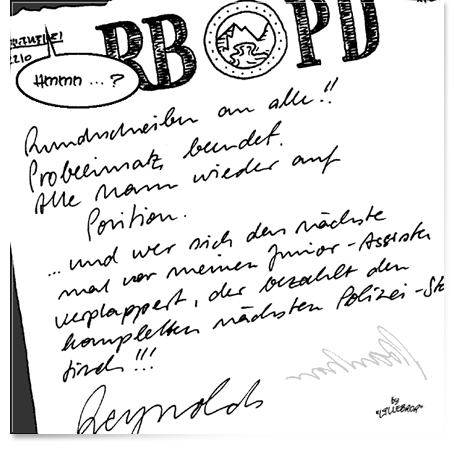 RB PD
2210
Hmmn ...?
Rundschreiben an alle!!
Probeeinsatz beendet.
Alle Mann wieder auf
Position.
...und wer sich das nächste
mal vor meinen Junior-Assisten
verplappert, der bezahlt den
kompletten nächsten Polizei-Sta
Reynolds
by